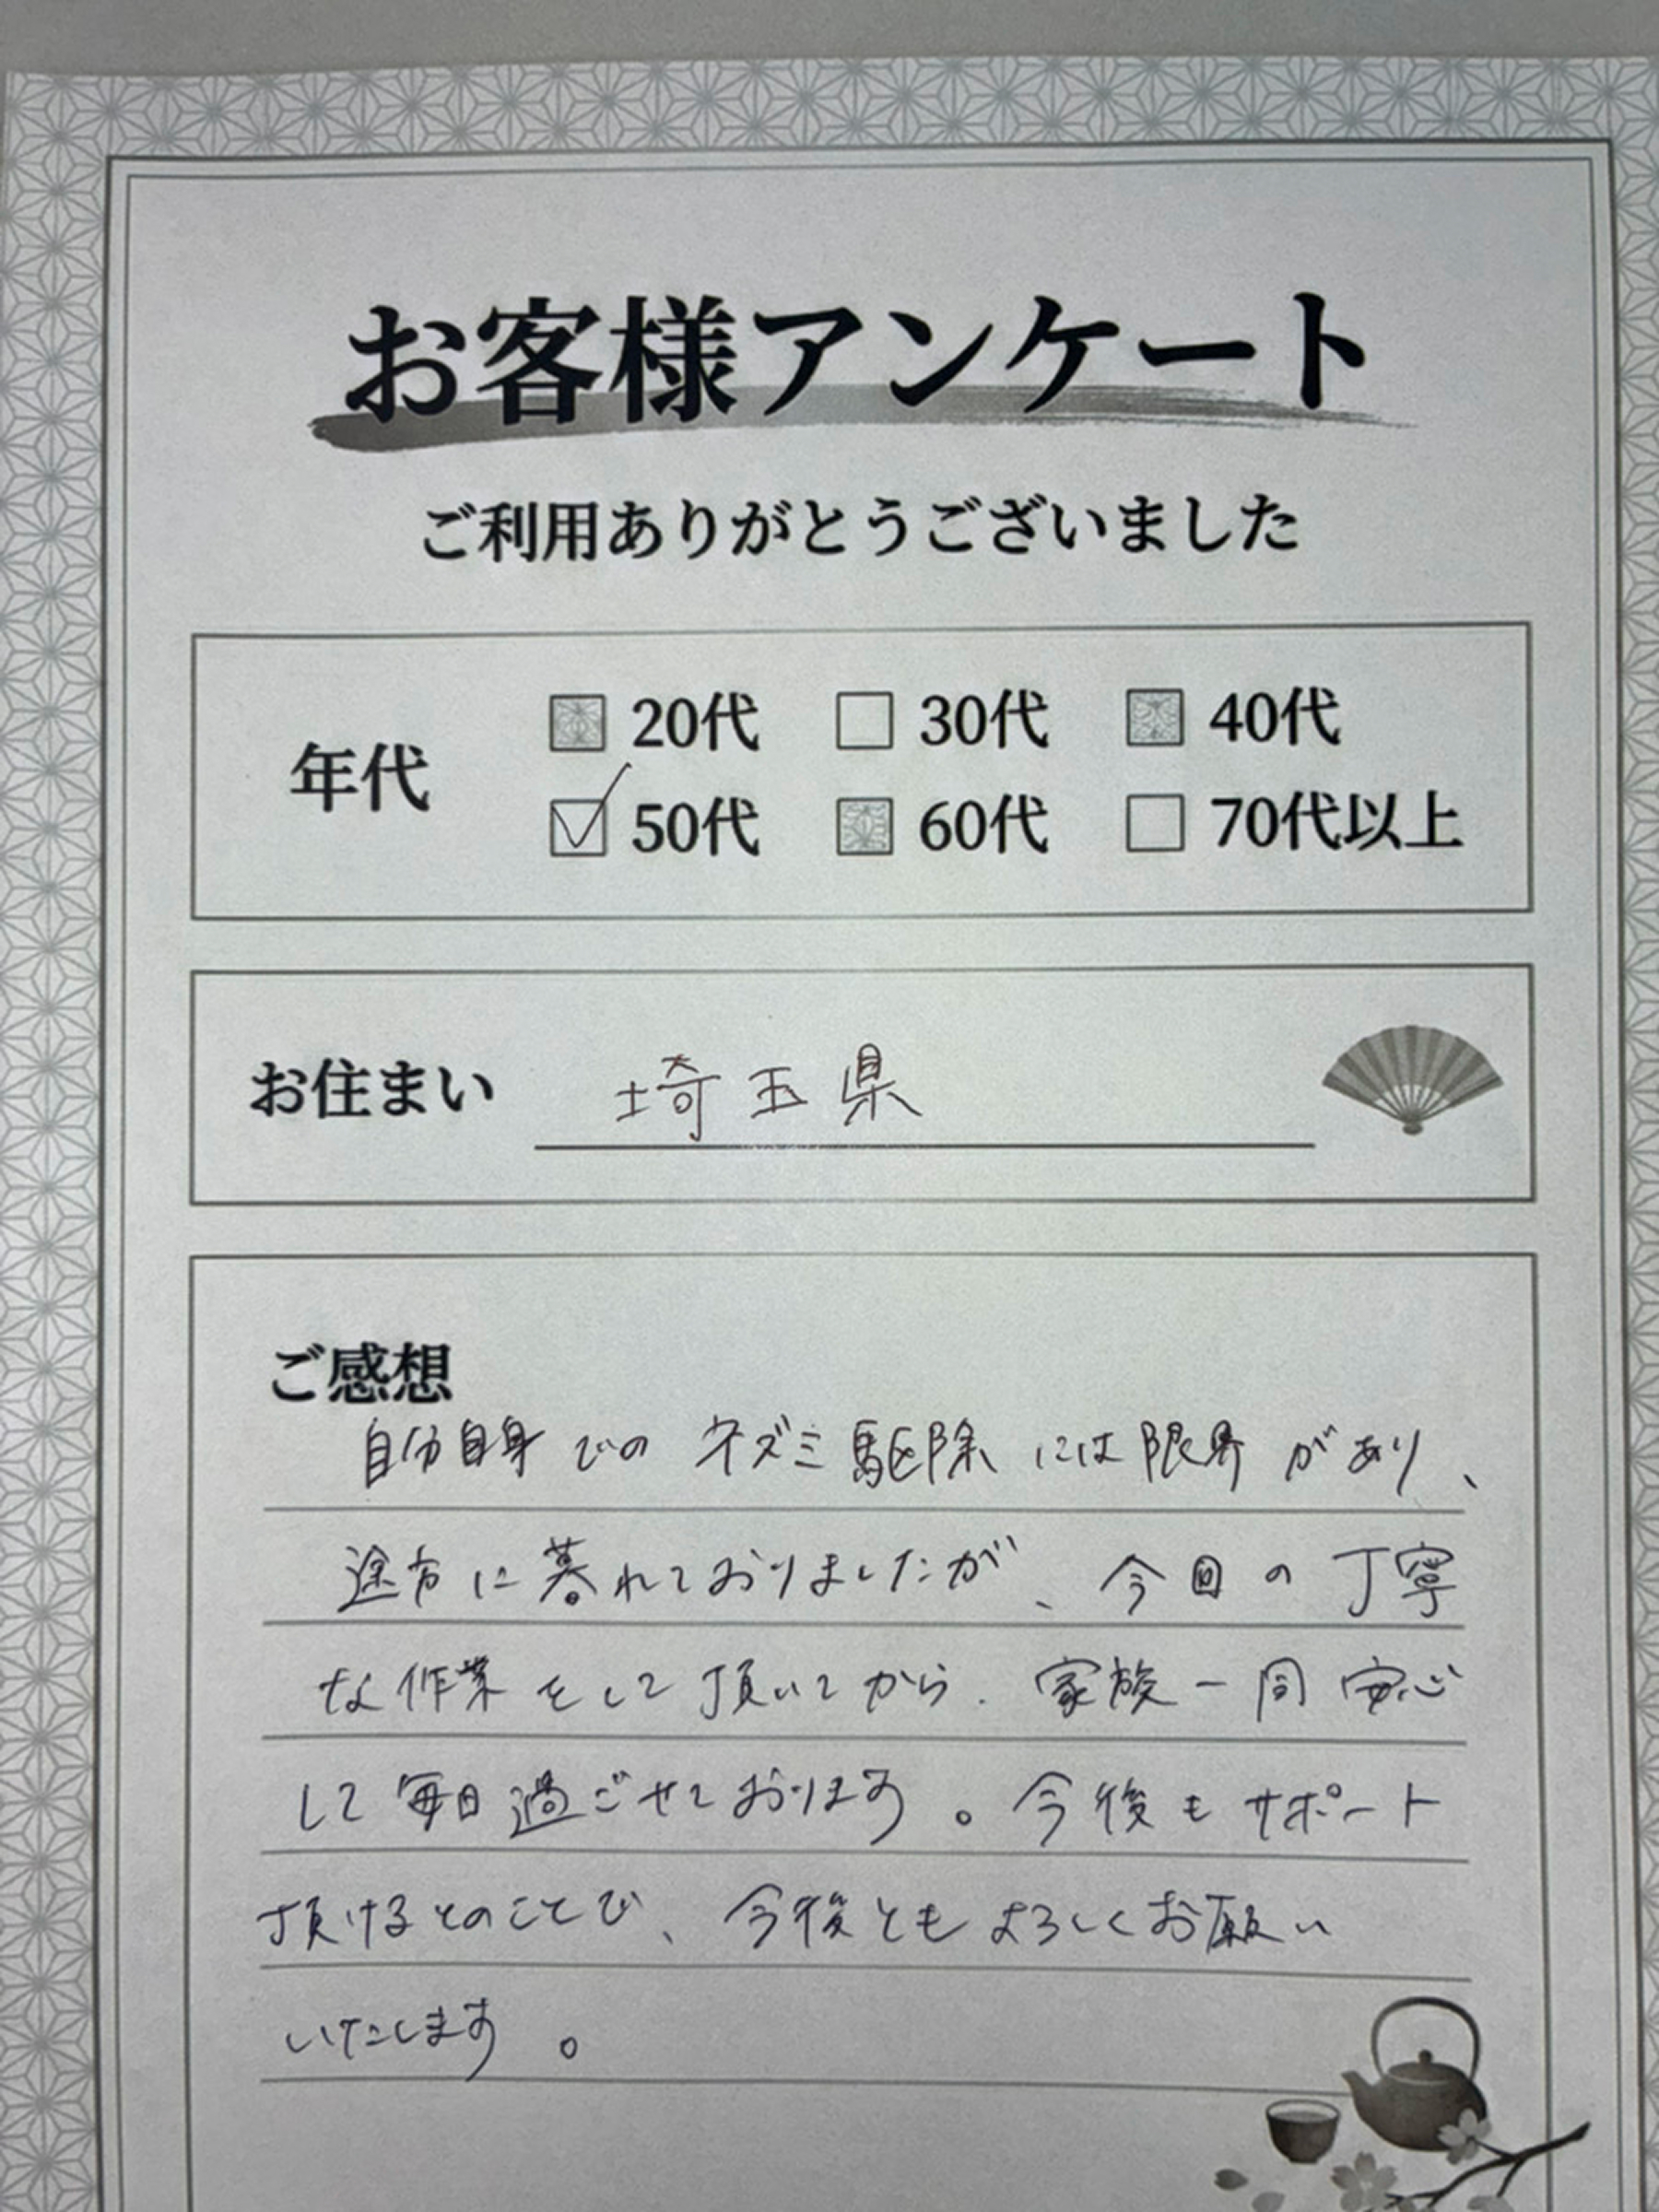 お客様アンケート
ご利用ありがとうございました
年代
20代 30代 40代
50代 60代 70代以上
お住まい 埼玉県
ご感想
自分自身でのネズミ駆除には限界があり、
途方に暮れておりましたが、今回の丁寧
な作業をして頂いてから、家族一同安心
して毎日過ごせております。今後もサポート
頂けるとのことで、今後ともよろしくお願い
いたします。